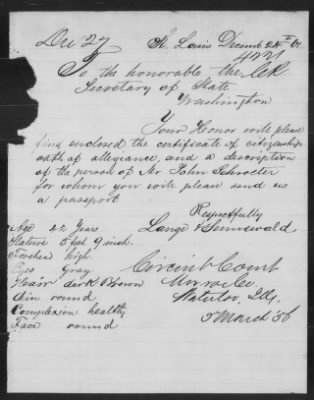 Dec 27
St. Louis Decemb 24th 61.
To the honorable the
Secretary of State
Washington
Your Honor will please
find enclosed the certificate of citizenship
oath of allegiance, and a description
of the person of Mr John Schroeter
for whom you will please send us
a passport
Respectfully
Lange & Sennewald
Age 42 Years
Stature 5 feet 9 inch.
Forehead high.
Eyes Gray
Hair dark Brown
Chin round
Complexion healthy
Face round
Circuit Court
Monroe Co.
Waterloo, Ills.
5 March '56